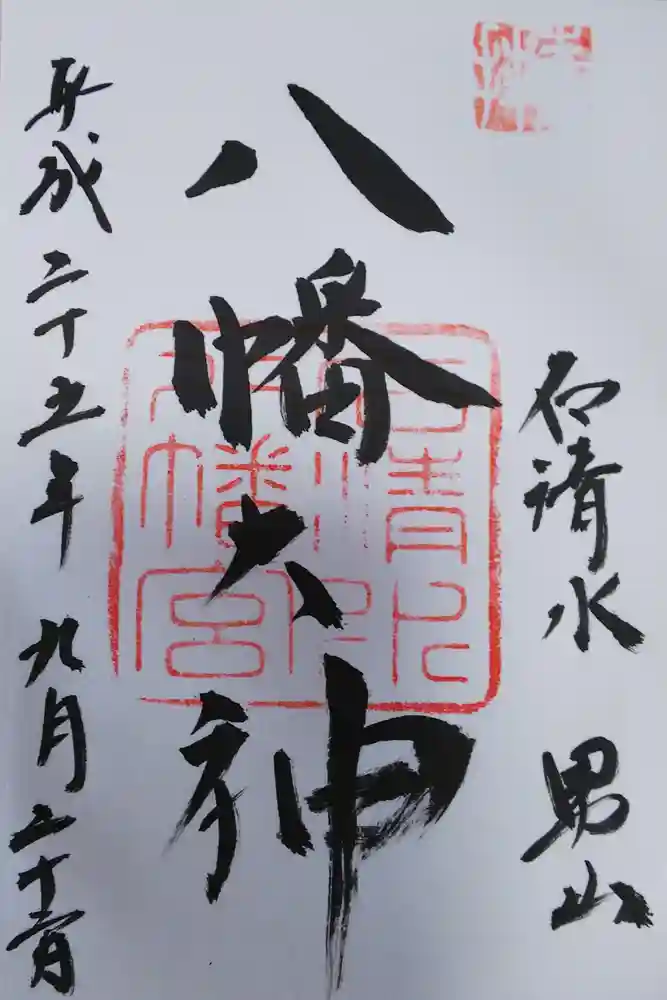 石清水 男山
八幡大神
平成二十五年 九月二十
八幡宮